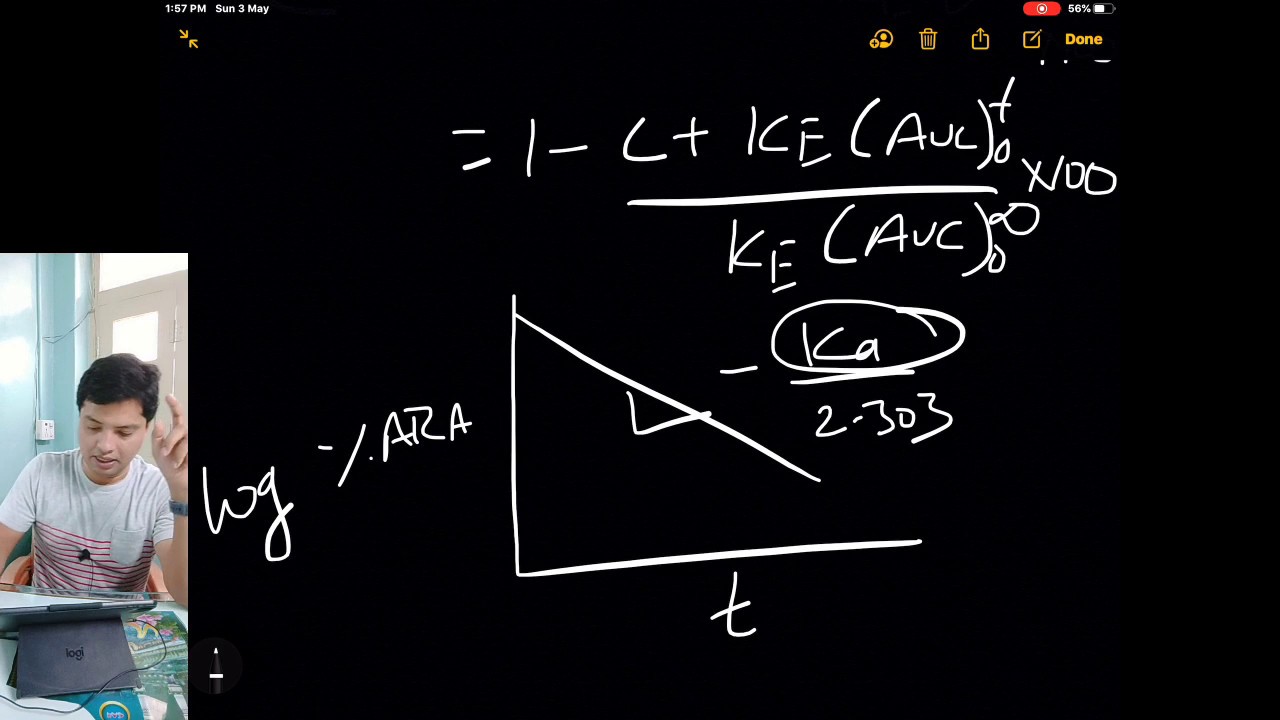 1:57 PM Sun 3 May 56%
Done
= 1 - C + KE (AUC)₀ᵗ
x100
KE (AUC)₀∞
- Ka
2.303
log % ARA
t
logi